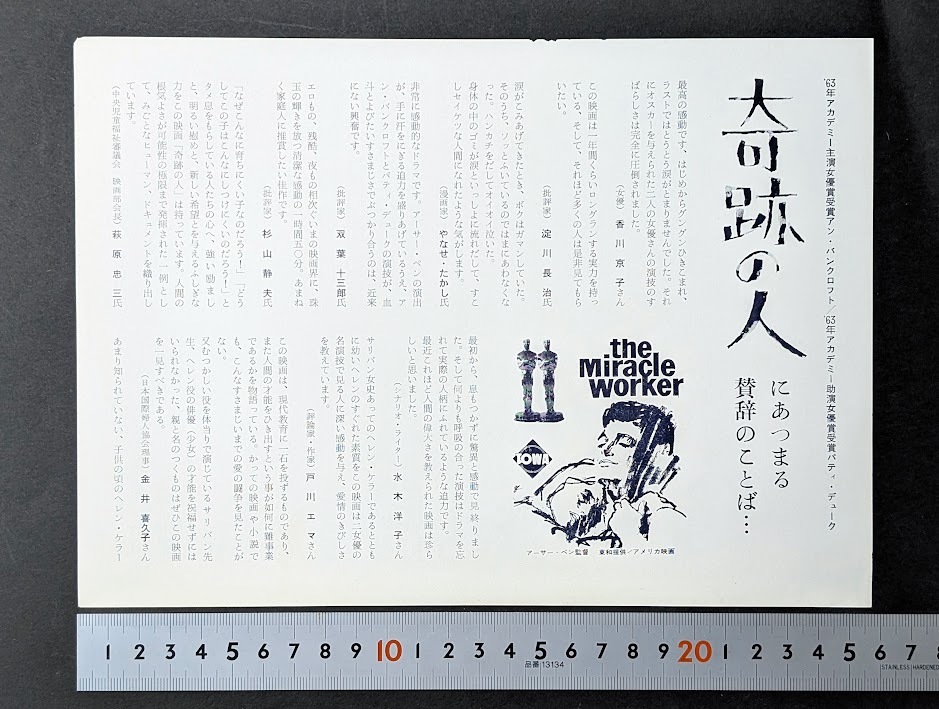 '63年アカデミー主演女優賞受賞アン・バンクロフト/'63年アカデミー助演女優賞受賞パティ・デューク
奇跡の人
にあつまる
賛辞のことば…
最高の感動です、はじめからグングンひきこまれ、
ラストではとうとう涙がとまりませんでした。それ
にオスカーを与えられた二人の女優さんの演技のす
ばらしさは完全に圧倒されました。
(女優) 香川京子さん
この映画は一年間くらいロングランする実力を持っ
ている、そして、それほど多くの人は是非見てもら
いたい。
(批評家) 淀川長治氏
涙がこみあげてきたとき、ボクはガマンしていた。
そのうち、グッといているのではまにあわなくな
った。ハンカチをだしてオイオイ泣いた。
身体の中のゴミが涙といっしょに流れだして、すこ
しセイケツな人間になれたような気がします。
(漫画家) やなせ・たかし氏
非常に感動的なドラマです。アーサー・ペンの演出
が、手に汗をにぎる迫力を盛りあげているうえ、ア
ン・バンクロフトとパティ・デュークの演技が、血
斗とよびたいすさまじさでぶつかり合うのは、近来
にない興奮です。
(批評家) 双葉十三郎氏
エロもの、残酷、夜もの相次ぐいまの映画界に、珠
玉の輝きを放つ清潔な感動の一時間五〇分。あまね
く家庭人に推賞したい佳作です。
(批評家) 杉山静夫氏
「なぜこんなに育ちにくい子なのだろう!」「どう
してこの子はこんなにしつけにくいのだろう!」と
タメ息をもらしている人たちの心へ、強い励まし
と、明るい慰めと、新しい希望とを与えるふしぎな
力をこの映画「奇跡の人」は持っています。人間の
根気よさが可能性の極限まで発揮された一例とし
て、みごとなヒューマン、ドキュメントを織り出し
ています。
(中央児童福祉審議会 映画部会長) 萩原忠三氏
the
Miracle
worker
IOWA
アーサー・ペン監督 東和提供/アメリカ映画
最初から、息もつかずに驚異と感動で見終りまし
た。そして何よりも呼吸の合った演技はドラマを忘
れて実際の人柄にふれているような迫力です。
最近これほど人間の偉大さを教えられた映画は珍ら
しいと思いました。
(シナリオ・ライター) 水木洋子さん
サリバン女史あってのヘレン・ケラーであるととも
に幼いヘレンのすぐれた素質をこの映画は二女優の
名演技で見る人に深い感動を与え、愛情のきびしさ
を教えています。
(評論家・作家) 戸川エマさん
この映画は、現代教育に一石を投ずるものであり、
また人間の才能をひき出すという事が如何に難事業
であるかを物語っている。かつての映画や小説で
も、こんなすさまじいまでの愛の闘争を見たことが
ない。
又むつかしい役を体当りで演じているサリバン先
生、ヘレン役の俳優(少女)の才能を祝福せずには
いられなかった、親と名のつくものはぜひこの映画
を一見すべきである。
(日本国際婦人協会理事) 金井喜久子さん
あまり知られていない、子供の頃のヘレン・ケラー
1 2 3 4 5 6 7 8 9 10 1 2 3 4 5 6 7 8 9 20 1 2 3 4 5 6 7
品番:13134
STAINLESS HARDENED